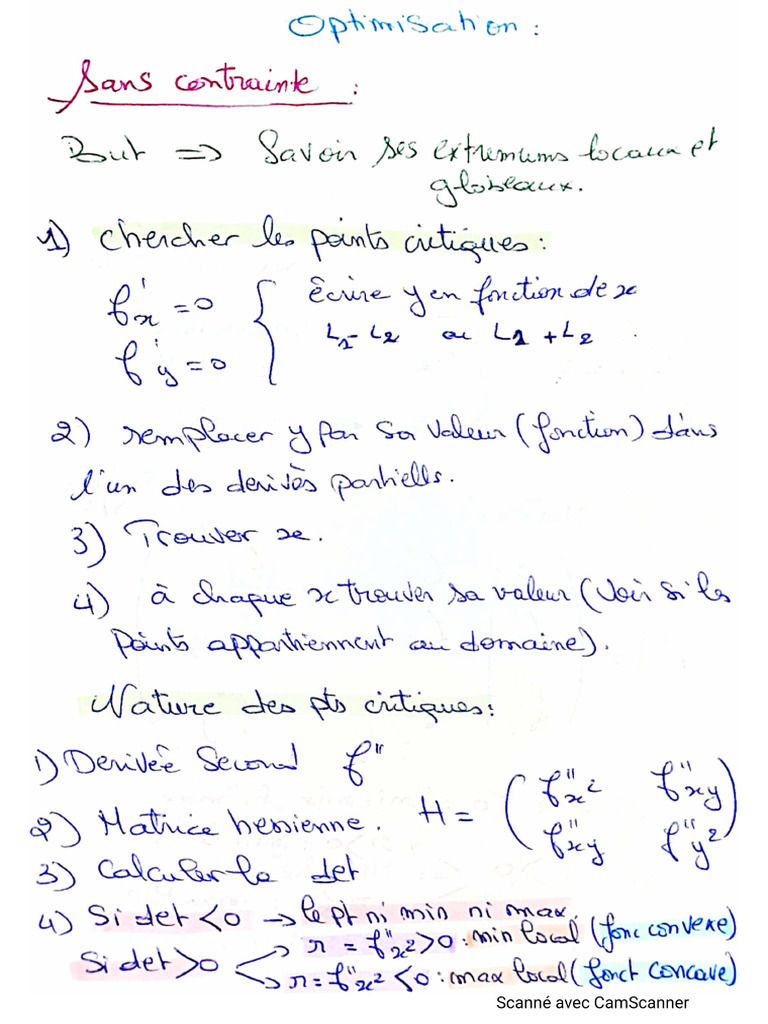 Optimisation :
Sans contrainte :
But => Savoir ses extremums locaux et
globeaux.
1) chercher les points critiques :
f'x = 0 { Écrire y en fonction de x
L1 - L2 ou L1 + L2 .
f'y = 0
2) remplacer y par sa valeur (fonction) dans
l'un des derivès partiells.
3) Trouver x.
4) à chaque x trouver sa valeur (Voir si les
points appartiennent au domaine).
Nature des pts critiques :
1) Derivée Second f"
2) Matrice hessienne. H = ( f"x² f"xy
f"xy f"y² )
3) Calculer le det
4) Si det < 0 → le pt ni min ni max.
Si det > 0 r = f"x² > 0 : min local (fonc convexe)
r = f"x² < 0 : max local (fonct concave)
Scanné avec CamScanner